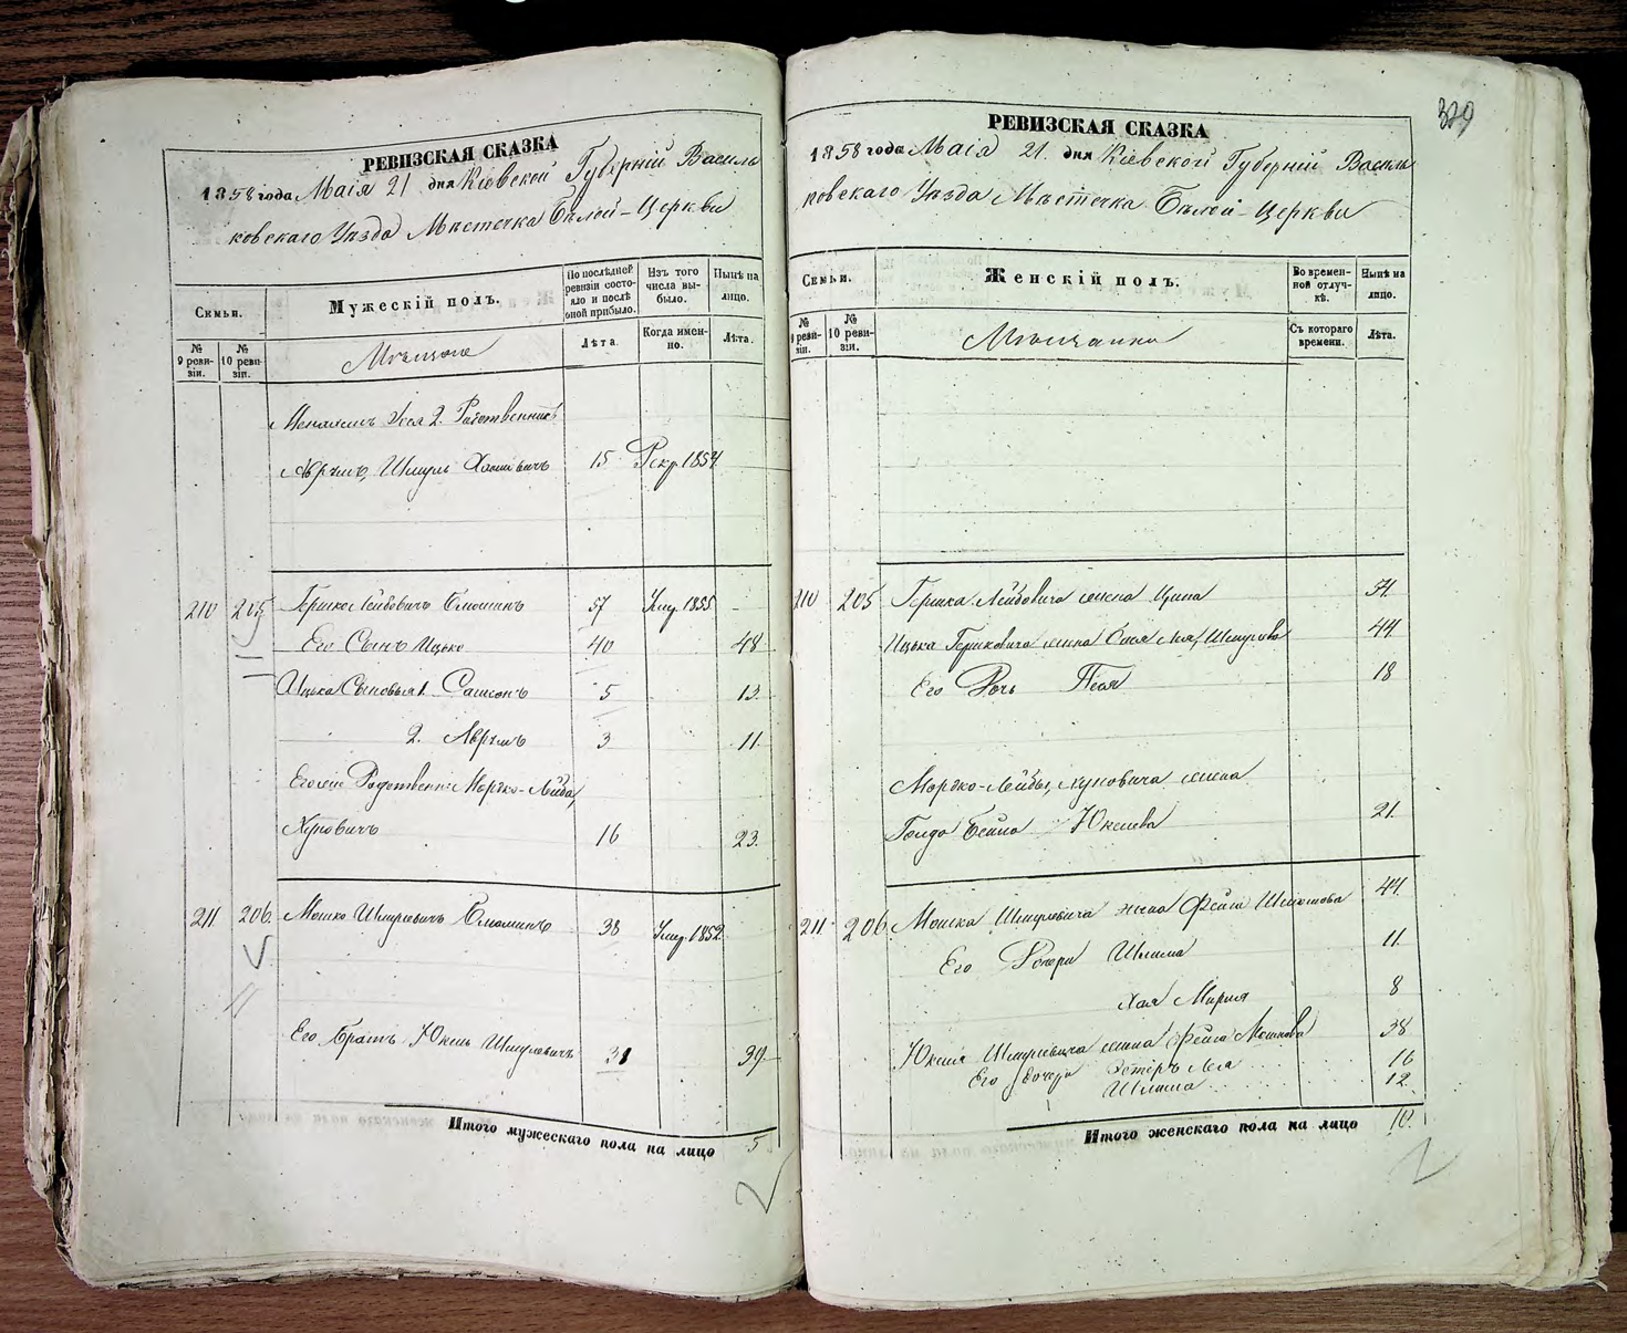 РЕВИЗСКАЯ СКАЗКА
1858 года Маія 21 дня Кіевской Губерній Василь
ковскаго Уѣзда Мѣстечка Бѣлой-Церкви
Семьи.
Мужескій полъ.
По послѣдней ревизіи состояло и послѣ оной прибыло.
Изъ того числа выбыло.
Нынѣ на лицо.
№ 9 ревизіи.
№ 10 ревизіи.
Мѣщане
Лѣта.
Когда именно.
Лѣта.
2. Родственникъ
Аврумъ Шмуль 15 Рекр. 1854
210 205 Гершко Лейбовичъ 57 Умр. 1855
Его Сынъ Ицько 40 48
Ицька Сыновья 1. Самсонъ 5 13.
2. Аврумъ 3 11.
Родственн: Мордко-Лейба
16 23.
211 206. Мошко Шмулевичъ 38 Умр. 1852
Его Братъ Юкель Шмулевичъ 31 39
Итого мужескаго пола на лицо 5
329
РЕВИЗСКАЯ СКАЗКА
1858 года Маія 21. дня Кіевской Губерній Василь
ковскаго Уѣзда Мѣстечка Бѣлой-Церкви
Семьи.
Женскій полъ.
Во временной отлучкѣ.
Нынѣ на лицо.
№ 9 ревизіи.
№ 10 ревизіи.
Мѣщанки
Съ котораго времени.
Лѣта.
210 205 Гершка Лейбовича жена Ципа 54.
Ицька Гершковича жена Лея, Шмулева 44
Его Дочь Песя 18
Мордко-Лейбы, жена
Голда Бейла 21.
211 206. Мошка Шмулевича жена Фейга 44.
Его Дочери Шлима 11.
Хая Мирля 8
Юкеля Шмулевича жена Фейга Мошкова 38
Его дочери Эстеръ Лея 16
Шлима 12.
Итого женскаго пола на лицо 10.